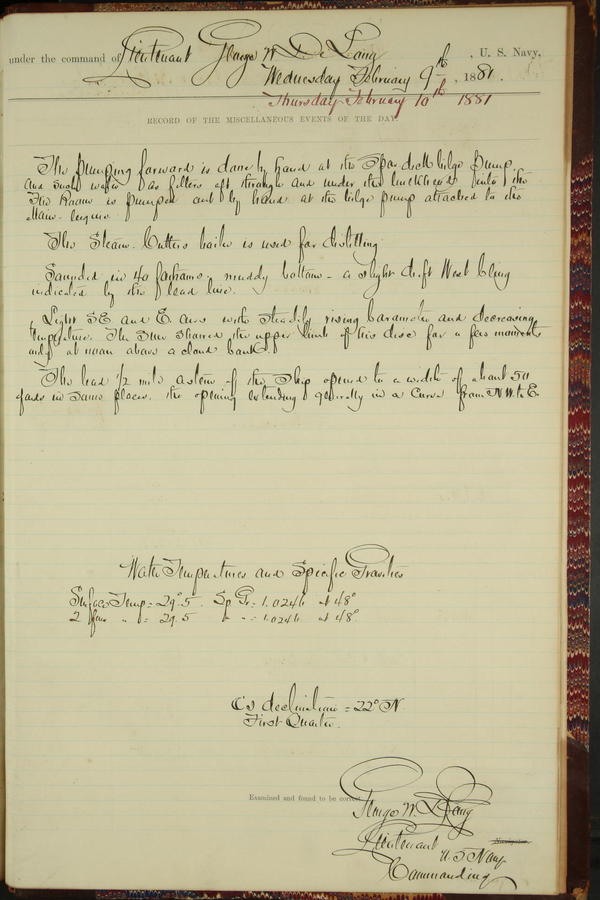 under the command of Lieutenant George W. De Long, U. S. Navy,
Wednesday February 9th, 1881.
Thursday February 10th 1881
RECORD OF THE MISCELLANEOUS EVENTS OF THE DAY.
The pumping forward is done by hand at the Spar deck bilge pump,
and such water as filters aft through and under the bulkhead into the
Fire Room is pumped out by hand at the bilge pump attached to the
Main engine.
The Steam Cutters boiler is used for distilling
Sounded in 40 fathoms, muddy bottom - a slight drift West being
indicated by the lead line.
Light SE and E airs with steadily rising barometer and decreasing
temperature. The Sun showed the upper limb of his disc for a few moments
only at noon above a cloud bank.
The lead 1/2 mile astern of the Ship opened to a width of about 50
yards in some places, the opening extending generally in a curve from NW to E.
Water Temperatures and Specific Gravities
Surface Temp = 29°.5 Sp Gr = 1.0246 at 48°
2 fms " = 29.5 " " = 1.0246 at 48°
☾'s declination = 22° N
First Quarter.
Examined and found to be correct.
George W. De Long
Lieutenant Navigator.
U.S. Navy
Commanding